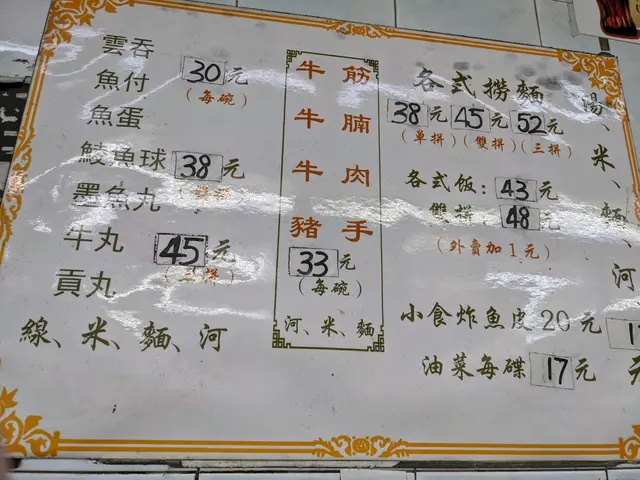 雲吞
魚付 30元
(每碗)
魚蛋
鯪魚球 38元
(雙拼)
墨魚丸
牛丸 45元
(三拼)
貢丸
線、米、麵、河
牛筋
牛腩
牛肉
豬手
33元
(每碗)
河、米、麵
各式撈麵
38元 45元 52元
(单拼) (雙拼) (三拼)
各式饭: 43元
雙拼: 48元
(外賣加1元)
小食炸魚皮20元
油菜每碟 17元
湯、米、麵、河
元